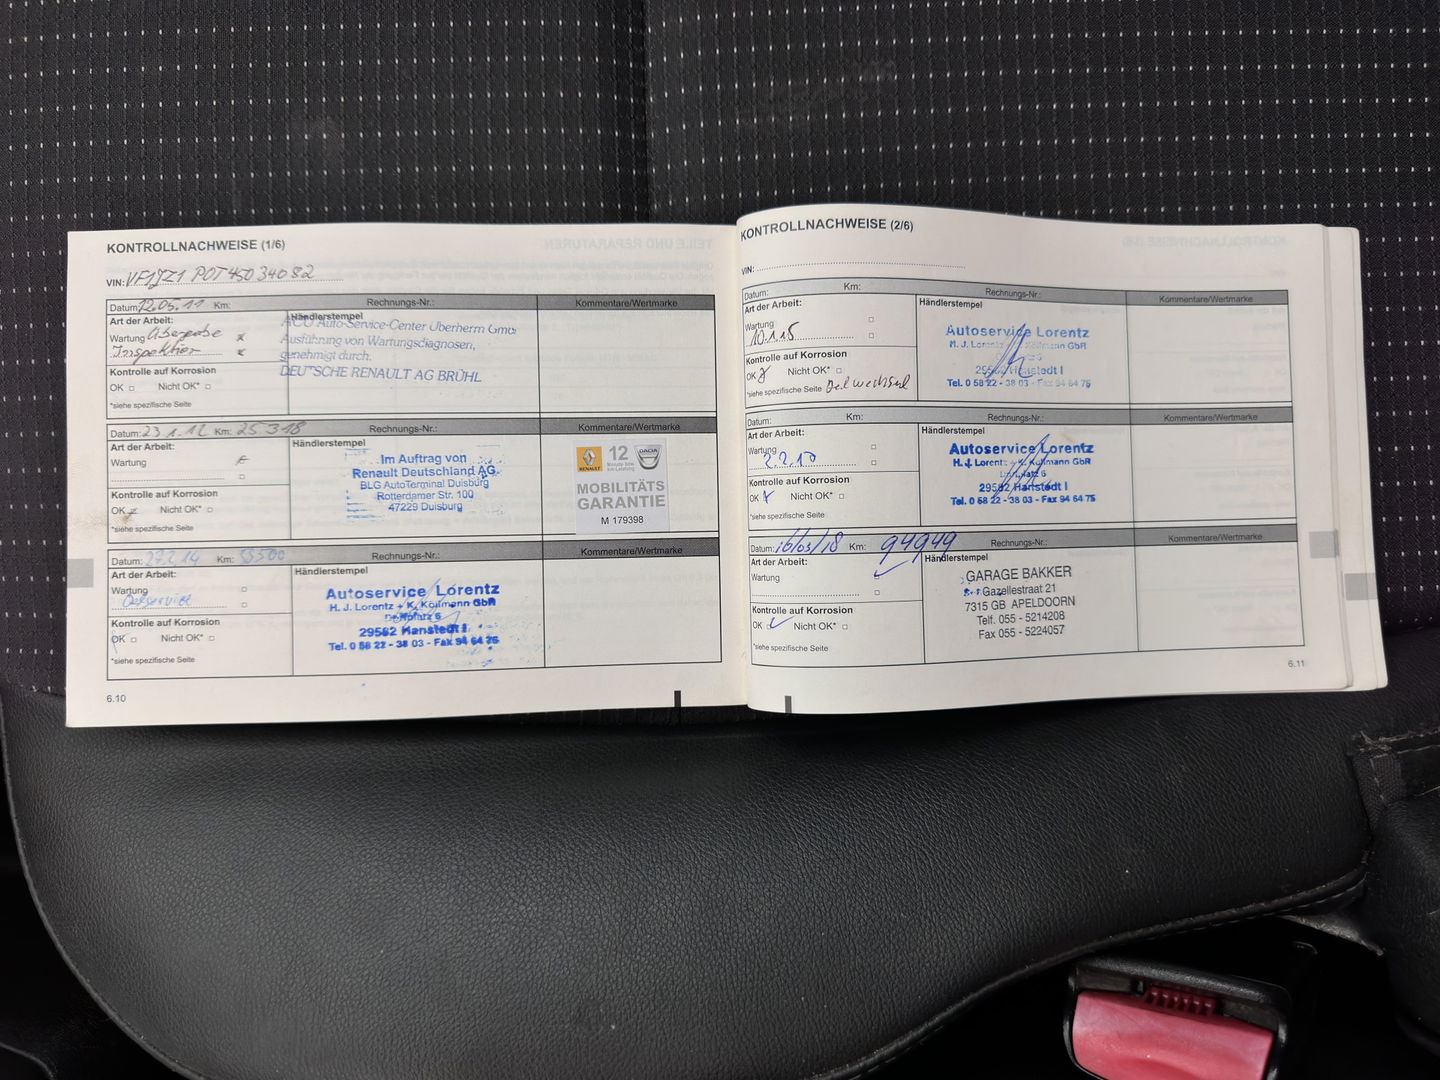 KONTROLLNACHWEISE (1/6)
VIN: VF1JZ1 P0T45034082
Datum: 12.05.11 Km: Rechnungs-Nr.: Kommentare/Wertmarke
Art der Arbeit: Händlerstempel
Wartung Übergabe x
Inspektion x
Kontrolle auf Korrosion
OK □ Nicht OK* □
*siehe spezifische Seite
ACÜ Auto-Service-Center Überherrn GmbH
Ausführung von Wartungsdiagnosen,
genehmigt durch.
DEUTSCHE RENAULT AG BRÜHL
Datum: 23.1.12 Km: 25318 Rechnungs-Nr.: Kommentare/Wertmarke
Art der Arbeit: Händlerstempel
Wartung
Kontrolle auf Korrosion
OK Nicht OK* □
*siehe spezifische Seite
Im Auftrag von
Renault Deutschland AG
BLG AutoTerminal Duisburg
Rotterdamer Str. 100
47229 Duisburg
RENAULT 12 DACIA
MOBILITÄTS
GARANTIE
M 179398
Datum: 27.2.14 Km: Rechnungs-Nr.: Kommentare/Wertmarke
Art der Arbeit: Händlerstempel
Wartung □
Oelservice □
Kontrolle auf Korrosion
OK □ Nicht OK* □
*siehe spezifische Seite
Autoservice Lorentz
H. J. Lorentz + K. Kollmann GbR
29582 Hanstedt I
Tel. 0 58 22 - 38 03 - Fax 94 64 75
6.10
KONTROLLNACHWEISE (2/6)
VIN:
Datum: Km: Rechnungs-Nr.: Kommentare/Wertmarke
Art der Arbeit: Händlerstempel
Wartung □
10.1.15 □
Kontrolle auf Korrosion
OK Nicht OK* □
*siehe spezifische Seite Oelwechsel
Autoservice Lorentz
H. J. Lorentz Kollmann GbR
29582 Hanstedt I
Tel. 0 58 22 - 38 03 - Fax 94 64 75
Datum: Km: Rechnungs-Nr.: Kommentare/Wertmarke
Art der Arbeit: Händlerstempel
Wartung □
□
Kontrolle auf Korrosion
OK Nicht OK* □
*siehe spezifische Seite
Autoservice Lorentz
H. J. Lorentz + K. Kollmann GbR
29582 Hanstedt I
Tel. 0 58 22 - 38 03 - Fax 94 64 75
Datum: 16/05/18 Km: 94949 Rechnungs-Nr.: Kommentare/Wertmarke
Art der Arbeit: Händlerstempel
Wartung ✓
□
Kontrolle auf Korrosion
OK ✓ Nicht OK* □
*siehe spezifische Seite
GARAGE BAKKER
Gazellestraat 21
7315 GB APELDOORN
Telf. 055 - 5214208
Fax 055 - 5224057
6.11